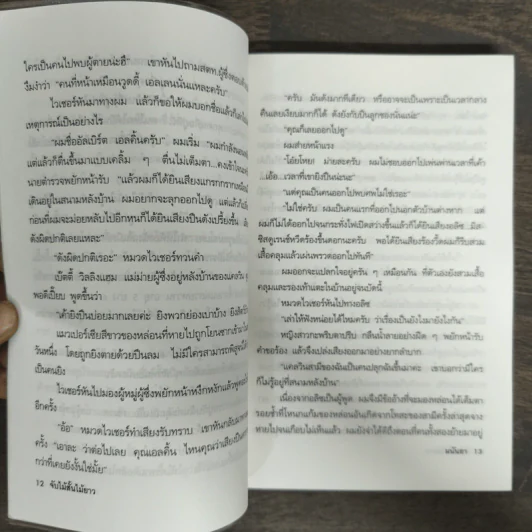 ใครเป็นคนไปพบผู้ตายน่ะฮึ" เขาหันไปถามสตท.ผู้ซึ่งตอบ
งึมงำว่า "คนที่หน้าเหมือนวูดดี้ เอลเลนนั่นแหละครับ"
ไวเชอร์หันมาทางผม แล้วก็ขอให้ผมบอกชื่อแล้วก็เล่า
เหตุการณ์เป็นอย่างไร
"ผมชื่ออัลเบิร์ต เอลคิ้นครับ" ผมเริ่ม "ผมกำลังนอน
แต่แล้วก็ตื่นขึ้นมาแบบเคลิ้ม ๆ ตื่นไม่เต็มตา...
นายตำรวจพยักหน้ารับ "แล้วผมก็ได้ยินเสียงแกรกกราก
เดินอยู่ในสนามหลังบ้าน ผมอยากจะลุกออกไปดู แต่แล้วก็
ก่อนที่ผมจะม่อยหลับไปอีกหุนก็ได้ยินเสียงปืนดังเปรี้ยงขึ้น
ดังผิดปกติเลยแหละ"
"ดังผิดปกติเรอะ" หมวดไวเชอร์ทวนคำ
เบ็ตตี้ วิลลิงแฮม แม่ม่ายผู้ซึ่งอยู่หลังบ้านของแคลวิน
พอดีเปี๊ยบ พูดขึ้นว่า
"เค้ายิงปืนบ่อยมากเลยค่ะ ยิงพวกย่องเบาบ้าง ยิงสัตว์
แมวเปอร์เซียสีขาวของหล่อนที่หายไปถูกโยนซากเข้ามา
วันหนึ่ง โดยถูกยิงตายด้วยปืนลม ไม่มีใครสามารถพิสูจน์
เป็นคนยิง
ไวเชอร์หันไปมองผู้หมู่ผู้ซึ่งพยักหน้าหงึกหงักแล้วพูด
อีกครั้ง
"อ้อ" หมวดไวเชอร์ทำเสียงรับทราบ เขาหันกลับมา
ครั้ง "เอาละ ว่าต่อไปเลย คุณเอลคิ้น ไหนคุณว่าเสียงปืน
กว่าที่เคยยังงั้นใช่มั้ย"
12 จับไม้สั้นไม้ยาว
"ครับ มันดังมากทีเดียว หรืออาจจะเป็นเพราะเป็นเวลากลาง
คืนเลยเงียบมากก็ได้ ดังยังกับปืนลูกซองนั่นแน่ะ"
"คุณก็เลยออกไปดู"
ผมส่ายหน้าแรง
"โอ๊ยไหย! ม่ายละครับ ผมไม่ชอบออกไปเพ่นพ่านเวลาที่เค้า
...เอ้อ...เวลาที่เขายิงปืนน่ะนะ"
"แต่คุณเป็นคนออกไปพบศพไม่ใช่เรอะ"
"ไม่ใช่ครับ ผมเป็นคนแรกที่ออกไปนอกตัวบ้านต่างหาก แต่
ผมก็ไม่ได้ออกไปจนกระทั่งไฟเปิดสว่างขึ้นแล้วก็ได้ยินเสียงอลิซ..มิส-
ซิสดูเรนซ์หวีดร้องขึ้นตอกนะครับ พอได้ยินเสียงร้องวี้ดผมก็รีบสวม
เสื้อคลุมแล้วเผ่นพรวดออกไปทันที"
ผมออกจะแปลกใจอยู่ครัน ๆ เหมือนกัน ที่ตัวเองยังสวมเสื้อ
คลุมและรองเท้าแตะในบ้านอยู่จนบัดนี้
หมวดไวเชอร์หันไปทางอลิซ
"เล่าให้ฟังหน่อยได้ไหมครับ ว่าเรื่องเป็นยังไงมายังไงกัน"
หญิงสาวกะพริบตาปริบ กลืนน้ำลายอย่างฝืด ๆ พยักหน้ารับ
คำขอร้อง แล้วจึงเปล่งเสียงออกมาอย่างยากลำบาก
"แคลวินสามีของฉันเป็นคนปลุกฉันขึ้นมาค่ะ เขาบอกว่ามีใคร
ก็ไม่รู้อยู่ที่สนามหลังบ้าน"
เนื่องจากอลิซเป็นผู้พูด ผมจึงมีข้ออ้างที่จะมองหล่อนได้เต็มตา
รอยช้ำที่โหนกแก้มของหล่อนอันเกิดจากโทสะของสามีครั้งล่าสุดจาง
หายไปจนเกือบไม่เห็นแล้ว ผมยังจำได้ดีถึงตอนที่คนทั้งสองย้ายมาอยู่
มนันยา 13